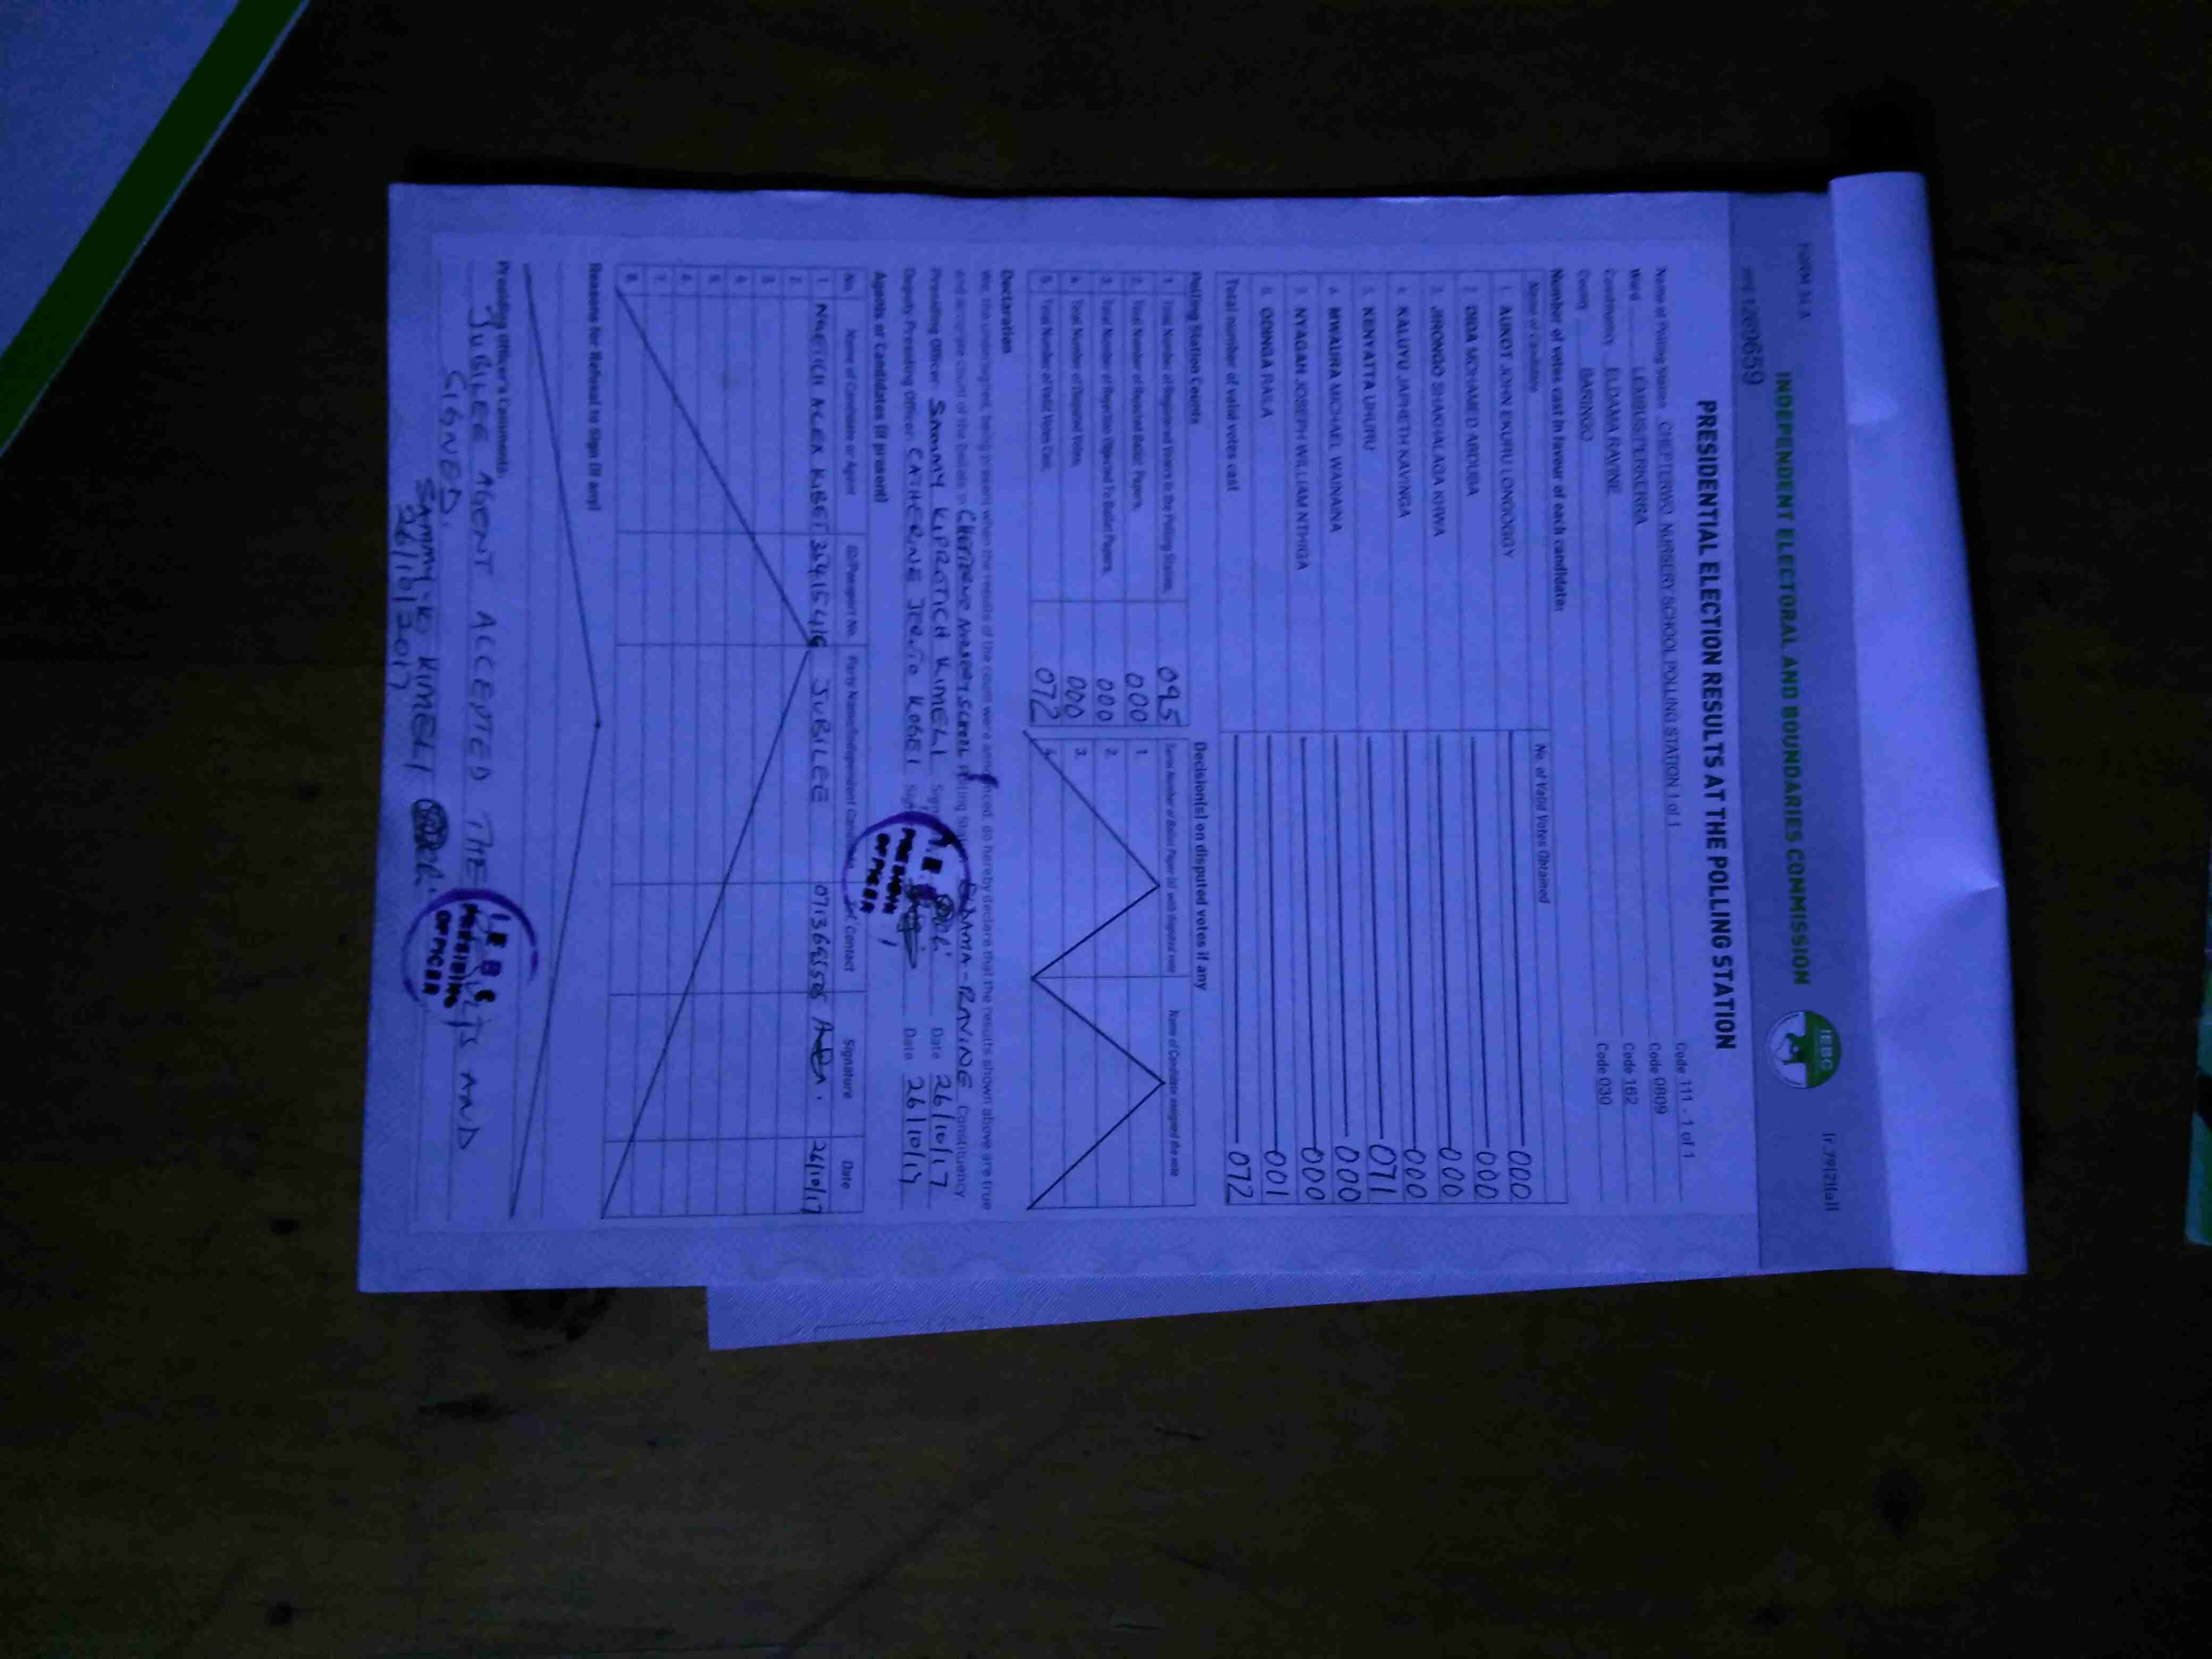 FORM 34A
INDEPENDENT ELECTORAL AND BOUNDARIES COMMISSION
IEBC
[r.79(2)(a)]
PRESIDENTIAL ELECTION RESULTS AT THE POLLING STATION
Name of Polling Station CHEPTERWO NURSERY SCHOOL POLLING STATION 1 of 1 Code 111 - 1 of 1
Ward LEMBUS PERKERRA Code 0809
Constituency ELDAMA RAVINE Code 162
County BARINGO Code 030
Number of votes cast in favour of each candidate:
Name of Candidate No. of Valid Votes Obtained
1. AUKOT JOHN EKURU LONGOGGY 000
2. DIDA MOHAMED ABDUBA 000
3. JIRONGO SHAKHALAGA KHWA 000
4. KALUYU JAPHETH KAVINGA 000
5. KENYATTA UHURU 071
6. MWAURA MICHAEL WAINAINA 000
7. NYAGAH JOSEPH WILLIAM NTHIGA 000
8. ODINGA RAILA 001
Total number of valid votes cast 072
Polling Station Counts
1. Total Number of Registered Voters in the Polling Station 095
2. Total Number of Rejected Ballot Papers. 000
3. Total Number of Rejection Objected To Ballot Papers. 000
4. Total Number of Disputed Votes. 000
5. Total Number of Valid Votes Cast 072
Decision(s) on disputed votes if any
Serial Number of Ballot Paper (s) with disputed vote Name of Candidate assigned the vote
1.
2.
3.
4.
Declaration
We, the undersigned, being present when the results of the count were announced, do hereby declare that the results shown above are true
and accurate count of the ballots in CHEPTERWO NURSERY SCHOOL Polling Station ELDAMA-RAVINE Constituency
Presiding Officer SAMMY KIPROTICH KIMELI Date 26/10/17
Deputy Presiding Officer CATHERINE Date 26/10/17
I.E.B.C
PRESIDING
OFFICER
Agents or Candidates (if present)
No. Name of Candidate or Agent ID/Passport No. Party Name/Independent Candidate Contact Signature Date
1 KIBET JUBILEE 26/10/17
2.
3.
4.
5.
6.
7.
8.
Reasons for Refusal to Sign (if any)
Presiding Officer's Comments
JUBILEE AGENT ACCEPTED THE RESULTS AND
SIGNED.
SAMMY .K. KIMELI
26/10/2017
I.E.B.C
PRESIDING
OFFICER